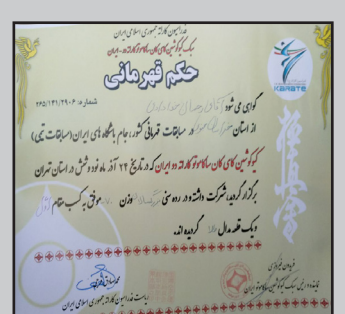 فدراسیون کاراته جمهوری اسلامی ایران
سبک کیوکوشین کای کان ساکاموتو کاراته دو - ایران
حکم قهرمانی
KARATE
شماره: ۲۶۵/۱۳۱/۲۹۰۶
گواهی می شود آقای
از استان در مسابقات قهرمانی کشور، جام باشگاه های ایران (مسابقات تیمی)
کیوکوشین کای کان ساکاموتو کاراته دو ایران که در تاریخ ۲۴ آذر ماه نود و شش در استان تهران
برگزار گردید، شرکت داشته و در رده سنی وزن موفق به کسب مقام
و یک قطعه مدال گردیده اند.
ریاست فدراسیون کاراته جمهوری اسلامی ایران